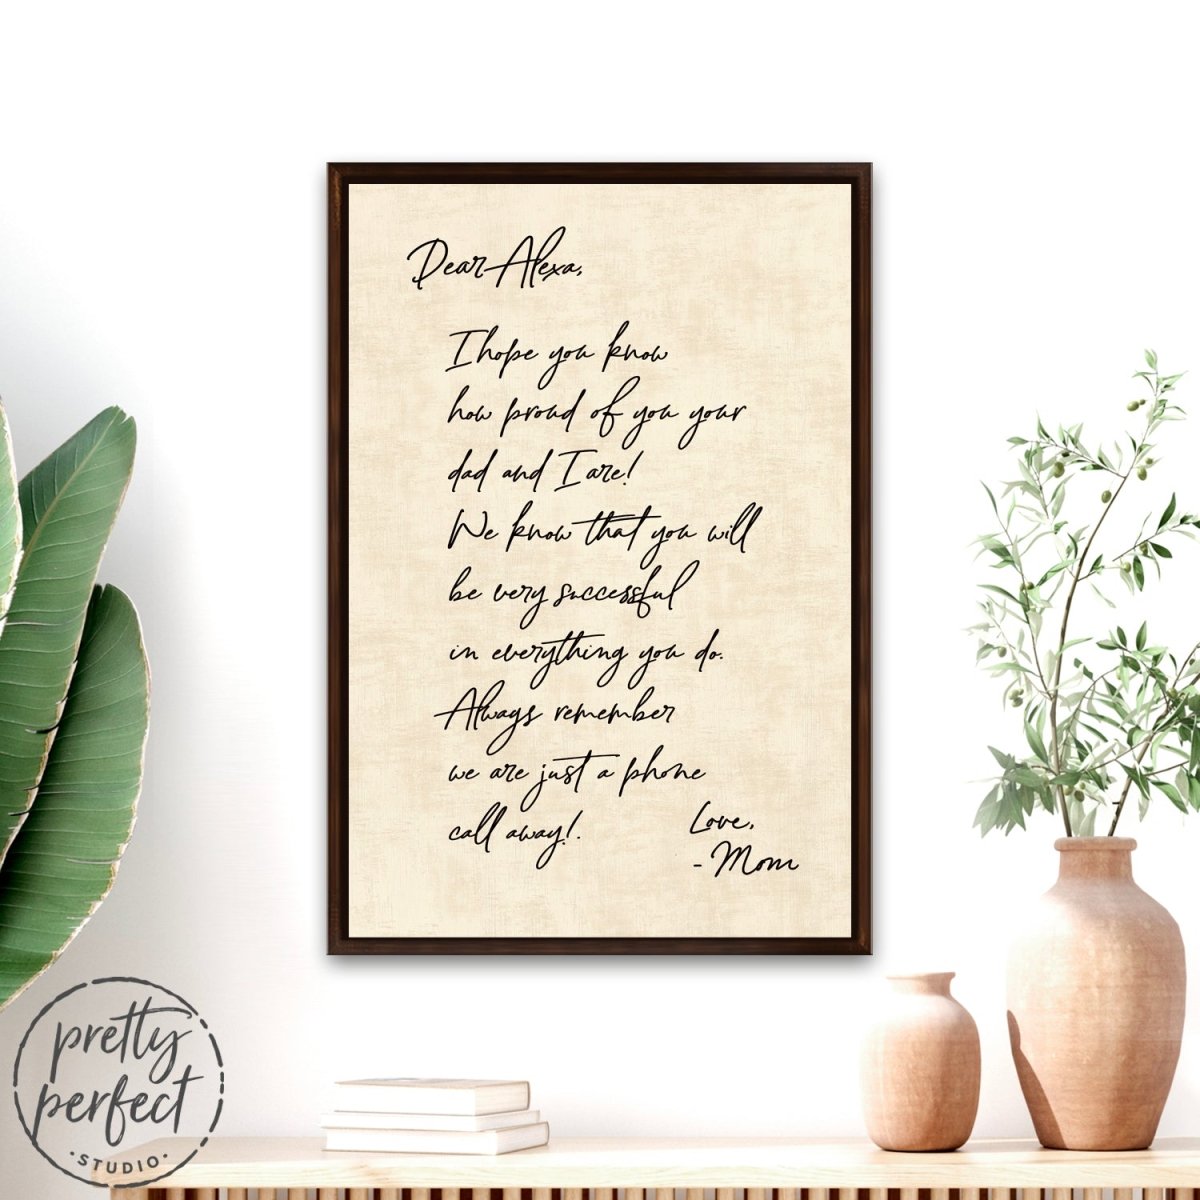 Dear Alexa,
I hope you know
how proud of you your
dad and I are!
We know that you will
be very successful
in everything you do.
Always remember
we are just a phone
call away!.
Love,
- Mom
pretty
perfect
·STUDIO·